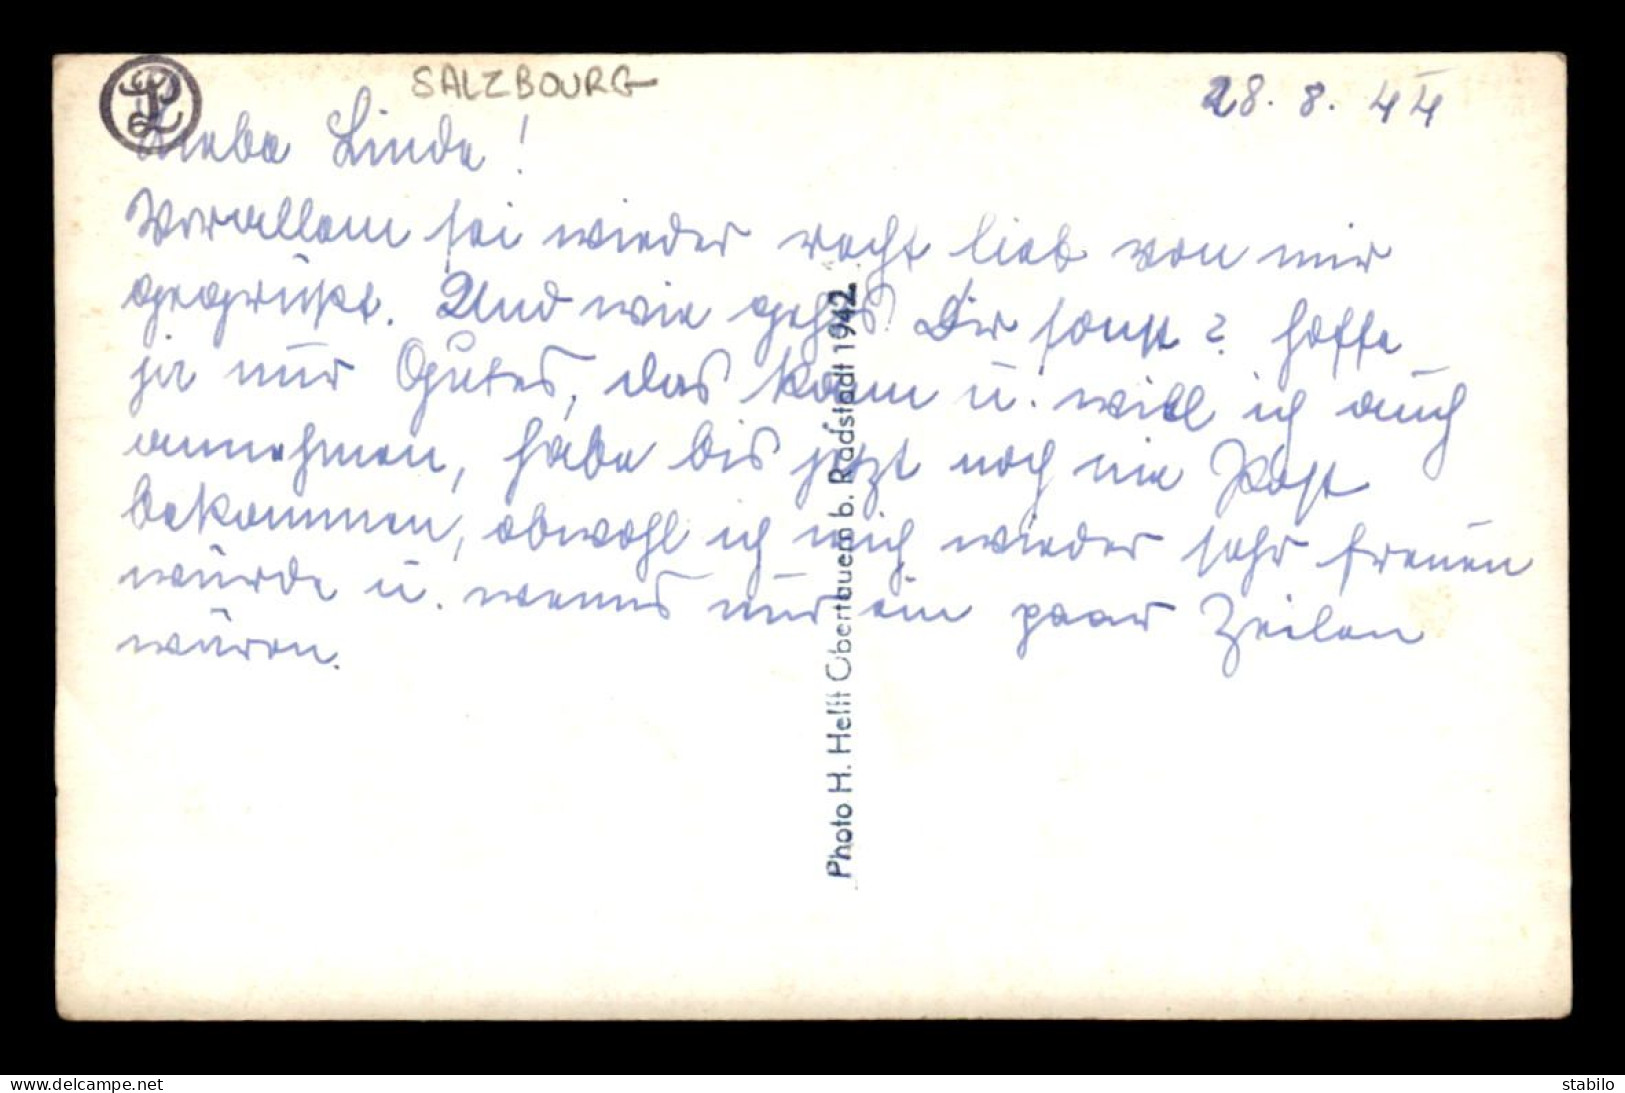 SALZBOURG
28. 8. 44
Liebe Linde!
Vorallem sei wieder recht lieb von mir
gegrüßt. Und wie gehts Dir sonst? hoffe
ja nur Gutes, das kann u. will ich auch
annehmen, habe bis jetzt noch nie Post
bekommen, obwohl ich mich wieder sehr freuen
würde u. wenns nur ein paar Zeilen
wären.
Photo H. Helft Obertauern b. Radstadt 1942
www.delcampe.net
stabilo